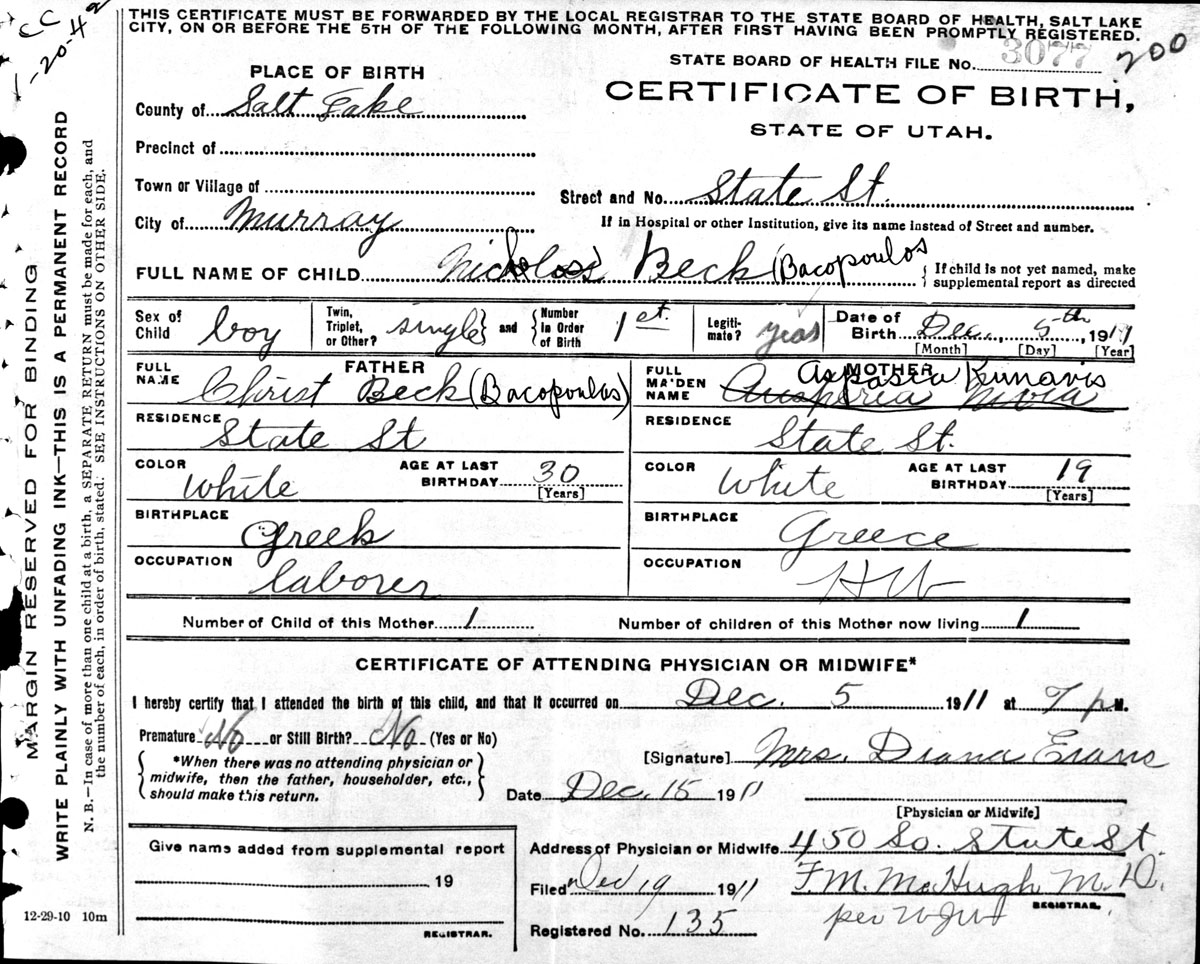 CC
1-20-42
THIS CERTIFICATE MUST BE FORWARDED BY THE LOCAL REGISTRAR TO THE STATE BOARD OF HEALTH, SALT LAKE
CITY, ON OR BEFORE THE 5TH OF THE FOLLOWING MONTH, AFTER FIRST HAVING BEEN PROMPTLY REGISTERED.
STATE BOARD OF HEALTH FILE No. 3077 200
CERTIFICATE OF BIRTH,
STATE OF UTAH.
PLACE OF BIRTH
County of Salt Lake
Precinct of
Town or Village of
Street and No. State St.
City of Murray
If in Hospital or other Institution, give its name instead of Street and number.
FULL NAME OF CHILD Nicholas Beck (Bacopoulos
If child is not yet named, make
supplemental report as directed
Sex of Child boy
Twin, Triplet, or Other? single and Number In Order of Birth 1st.
Legiti-mate? yeas
Date of Birth Dec., 5th, 1911
[Month] [Day] [Year]
FATHER
FULL NAME Christ Beck (Bacopoulos)
RESIDENCE State St
COLOR White
AGE AT LAST BIRTHDAY 30
[Years]
BIRTHPLACE Greek
OCCUPATION laborer
MOTHER
FULL MAIDEN NAME Aspasia Kunavis
RESIDENCE State St.
COLOR White
AGE AT LAST BIRTHDAY 19
[Years]
BIRTHPLACE Greece
OCCUPATION HW
Number of Child of this Mother 1
Number of children of this Mother now living 1
CERTIFICATE OF ATTENDING PHYSICIAN OR MIDWIFE*
I hereby certify that I attended the birth of this child, and that it occurred on Dec. 5 1911 at 7 p M.
Premature No or Still Birth? No (Yes or No)
*When there was no attending physician or
midwife, then the father, householder, etc.,
should make this return.
[Signature] Mrs. Diana Evans
Date Dec. 15 1911
[Physician or Midwife]
Address of Physician or Midwife 450 So. State St.
Filed Dec 19 1911 F. M. McHugh M.D.
REGISTRAR.
Registered No. 135
per
Give name added from supplemental report
19
REGISTRAR.
12-29-10 10m
MARGIN RESERVED FOR BINDING
WRITE PLAINLY WITH UNFADING INK—THIS IS A PERMANENT RECORD
N. B.—In case of more than one child at a birth, a SEPARATE RETURN must be made for each, and
the number of each, in order of birth, stated. SEE INSTRUCTIONS ON OTHER SIDE.